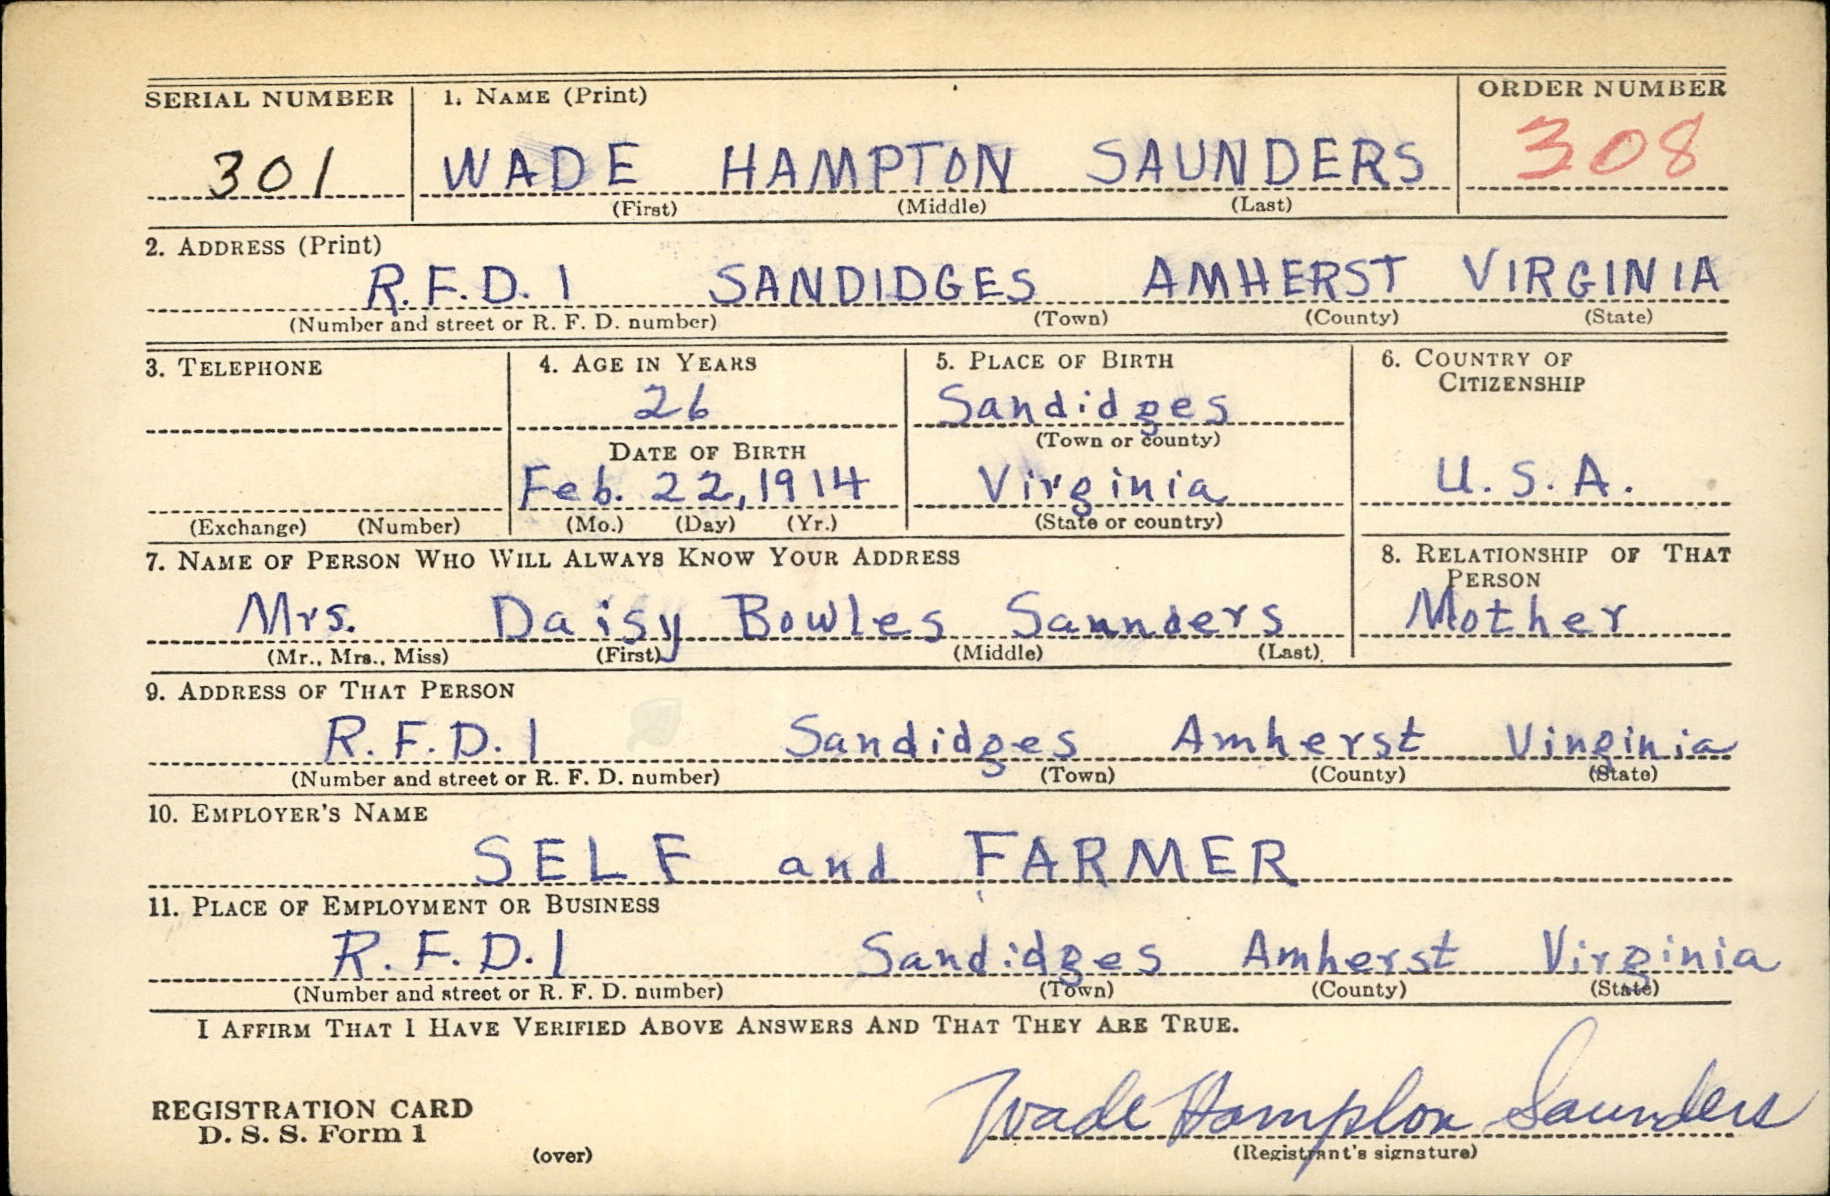 SERIAL NUMBER 1. NAME (Print) ORDER NUMBER
301 WADE HAMPTON SAUNDERS 308
(First) (Middle) (Last)
2. ADDRESS (Print)
R.F.D. 1 SANDIDGES AMHERST VIRGINIA
(Number and street or R. F. D. number) (Town) (County) (State)
3. TELEPHONE 4. AGE IN YEARS 5. PLACE OF BIRTH 6. COUNTRY OF CITIZENSHIP
26 Sandidges
DATE OF BIRTH (Town or county)
Feb. 22, 1914 Virginia U.S.A.
(Exchange) (Number) (Mo.) (Day) (Yr.) (State or country)
7. NAME OF PERSON WHO WILL ALWAYS KNOW YOUR ADDRESS 8. RELATIONSHIP OF THAT PERSON
Mrs. Daisy Bowles Saunders Mother
(Mr., Mrs., Miss) (First) (Middle) (Last)
9. ADDRESS OF THAT PERSON
R.F.D. 1 Sandidges Amherst Virginia
(Number and street or R. F. D. number) (Town) (County) (State)
10. EMPLOYER'S NAME
SELF and FARMER
11. PLACE OF EMPLOYMENT OR BUSINESS
R.F.D. 1 Sandidges Amherst Virginia
(Number and street or R. F. D. number) (Town) (County) (State)
I AFFIRM THAT I HAVE VERIFIED ABOVE ANSWERS AND THAT THEY ARE TRUE.
REGISTRATION CARD
D. S. S. Form 1
(over)
Wade Hampton Saunders
(Registrant's signature)